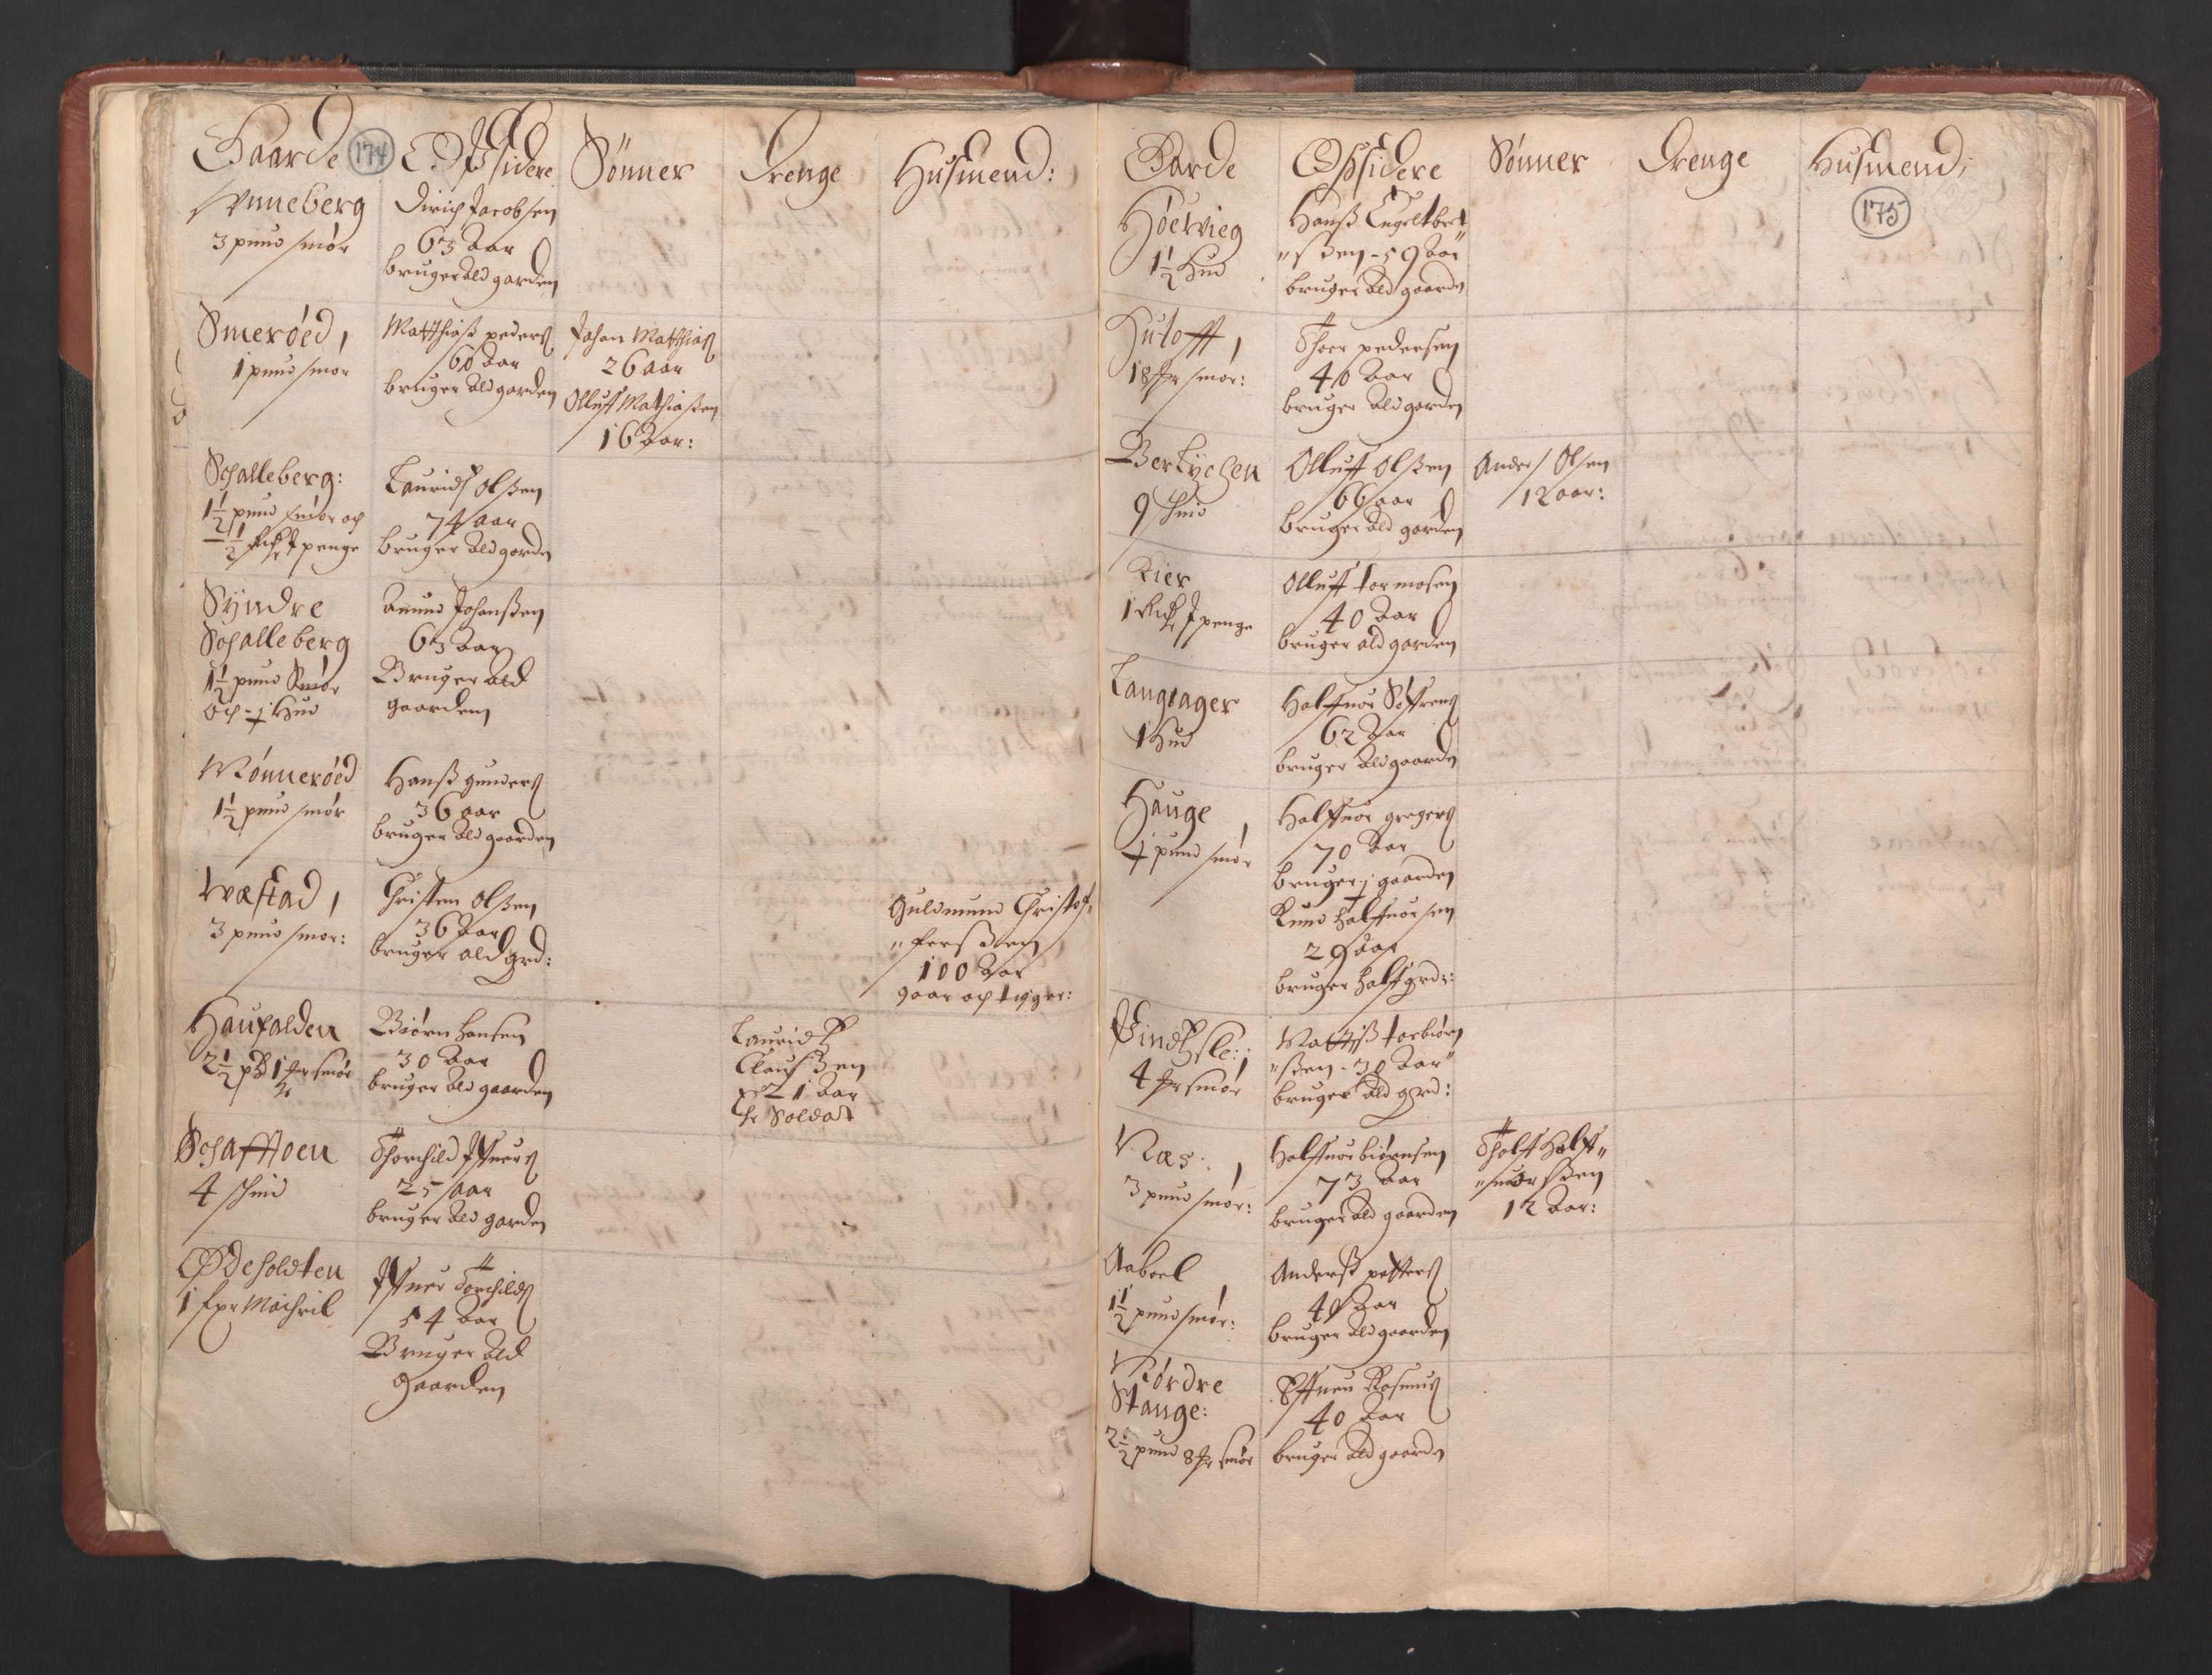 Gaarde 174 Opsidere Sönner Drenge Husmend:
Vnneberg
3 pund smör
Dirich Jacobsen
63 Aar
bruger Ald garden
Smeröed,
1 pund smör
Matthias peders
60 Aar
bruger Ald garden
Johan Matthias
26 aar
Olluff Mathiasen
16 Aar:
Schalleberg:
1½ pund smör och
½ Rich penge
Laurids Olssen
74 aar
bruger Ald garden
Syndre
Schalleberg
1½ pund Smör
Och - ½ Hud
Amund Johanssen
63 Aar
Bruger Ald
gaarden
Mönneröed
1½ pund smör
Hanss gunders
36 aar
bruger Ald gaarden
Wæstad,
3 pund smör:
Christen Olssen
36 Aar
bruger Ald grd:
Guldmund Christof„
„ferssen
100 Aar
gaar och tigger:
Haufalden
2½ pd 1 smör
Biörn hansen
30 Aar
bruger Ald gaarden
Laurids
Claussen
21 Aar
Er Soldat
Schafftoen
4 skind
Thorchild Iffuers
25 aar
bruger Ald garden
Ødeholdten
1 Machril
Iffuer Torchilds
54 Aar
Bruger Ald
Gaarden
Garde Opsidere Sönner Drenge Husmend;
175
Höeluieg
1½ Hud
Hanss Engeltbret
„ssen - 59 Aar
bruger Ald gaarden
Hutofft,
18 smör:
Thoer pedersen
40 Aar
bruger Ald garden
Berlychen
9 skind
Olluff Olssen
66 aar
bruger Ald garden
Anders Olsen
12 aar:
Kier
1 Rich penge
Olluff tormosen
40 Aar
bruger ald garden
Langeager
1 Hud
Halffuor Söffrens
62 Aar
bruger Ald gaarden
Hauge,
½ pund smör
Halffuor gregers
70 Aar
bruger ½ gaarden
Knud halffuorsen
29 aar
bruger halff grd:
Vindhsle:
4 smör
Mattis torbiörn
„ssen - 30 Aar
bruger Ald grd:
Næs:,
3 pund smör:
Halffuor biörnsen
73 Aar
bruger Ald gaarden
Tholff Halff„
„uorssen
12 Aar:
Aaboel,
1½ pund smör:
Anderss petters
40 Aar
bruger Ald gaarden
Nördre
Stange:
2½ pund 8 smör
Effuen Rasmus
40 Aar
bruger Ald gaarden